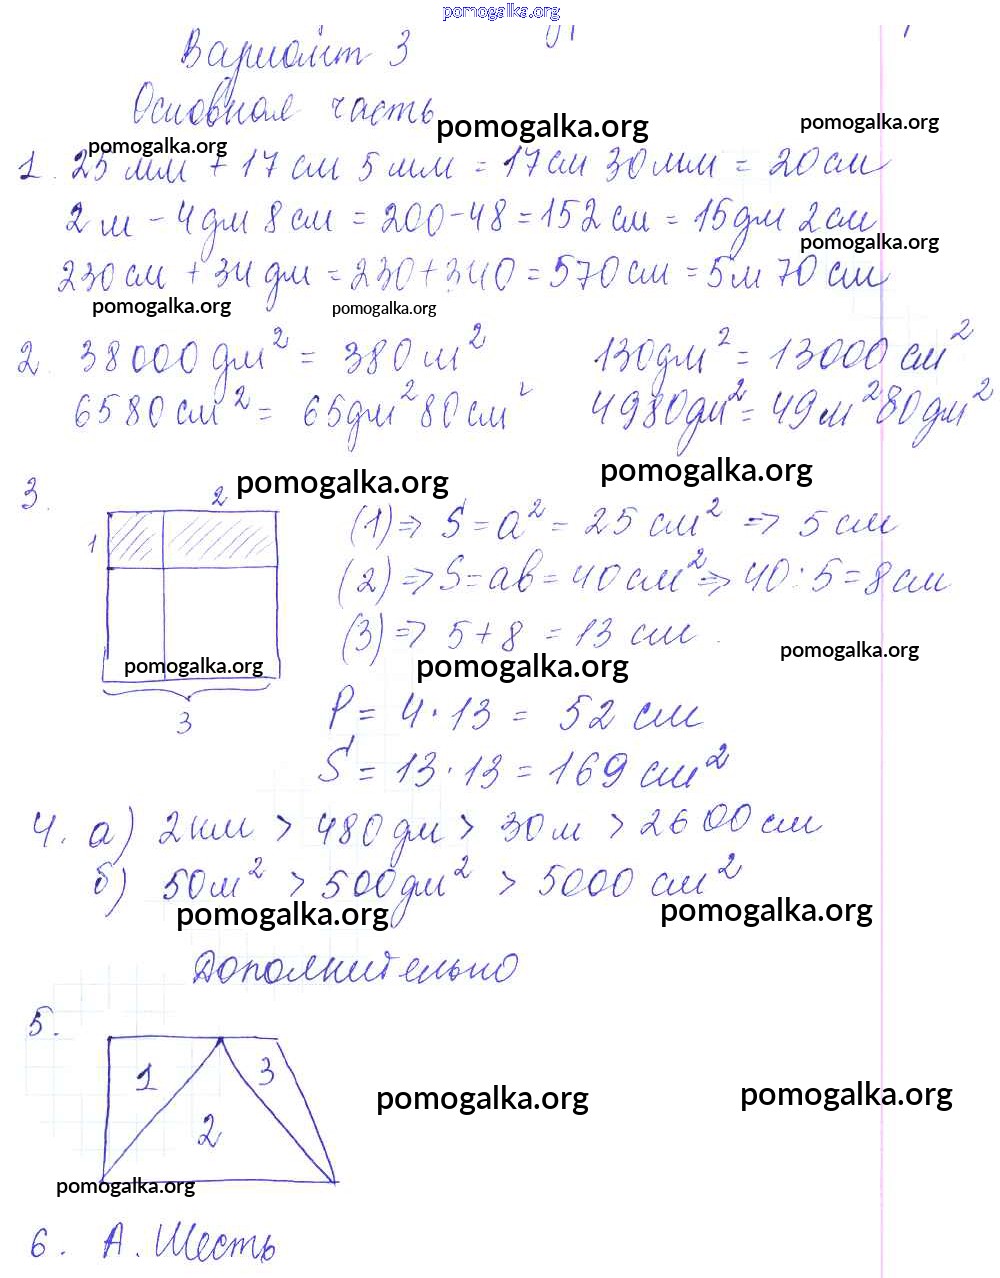 pomogalka.org
Вариант 3
Основная часть
pomogalka.org pomogalka.org
pomogalka.org
1. 25 мм + 17 см 5 мм = 17 см 30 мм = 20 см
2 м - 4 дм 8 см = 200 - 48 = 152 см = 15 дм 2 см
pomogalka.org
230 см + 34 дм = 230 + 340 = 570 см = 5 м 70 см
pomogalka.org pomogalka.org
2. 38000 дм² = 380 м² 130 дм² = 13000 см²
6580 см² = 65 дм² 80 см² 4980 дм² = 49 м² 80 дм²
pomogalka.org pomogalka.org
3.
2
1
3
(1) => S = a² = 25 см² => 5 см
(2) => S = ab = 40 см² => 40 : 5 = 8 см
(3) => 5 + 8 = 13 см.
pomogalka.org pomogalka.org pomogalka.org
P = 4 · 13 = 52 см
S = 13 · 13 = 169 см²
4. а) 2 км > 480 дм > 30 м > 2600 см
б) 50 м² > 500 дм² > 5000 см²
pomogalka.org pomogalka.org
Дополнительно
5.
1 2 3
pomogalka.org pomogalka.org
pomogalka.org
6. А. Шесть